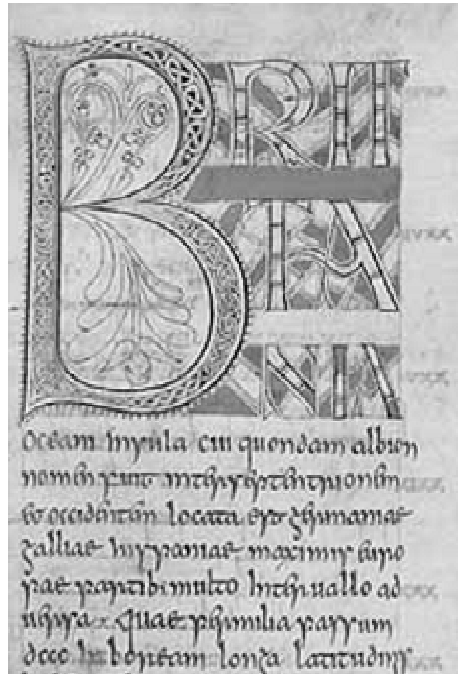 BRIT
TA
NIA
oceani insula cui quondam albion
nomen fuit inter septentrionem
et occidentem locata est germaniae
galliae hispaniae maximis euro
pae partib; multo interuallo ad
uersa. Quae per milia passuum
dccc in boream longa latitudinis